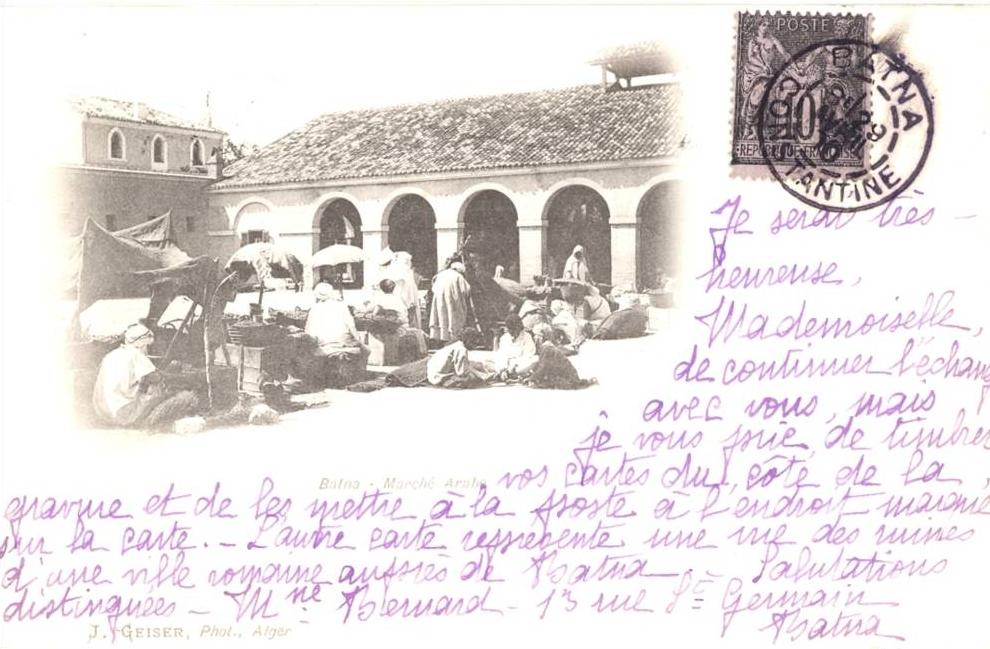 POSTE
10
REPUBLIQUE FRANÇAISE
BATNA
CONSTANTINE
Je serai très
heureuse,
Mademoiselle,
de continuer l'échang
avec vous, mais
je vous prie de timbrer
vos cartes du côté de la
Batna - Marché Arabe
gravure et de les mettre à la poste à l'endroit
sur la carte. - L'autre carte représente une vue des ruines
d'une ville romaine auprès de Batna. Salutations
distinguées - Mme Bernard - 13 rue St Germain
Batna
J. GEISER, Phot., Alger